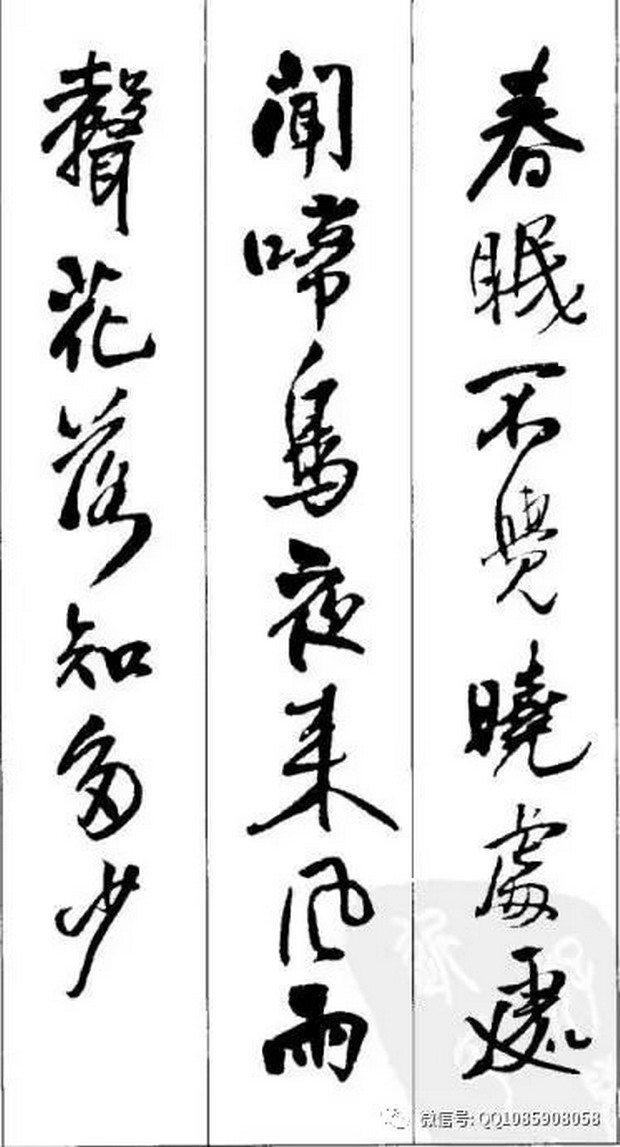 春眠不覺曉處處
聞啼鳥夜来風雨
聲花落知多少
微信号: QQ1085908058